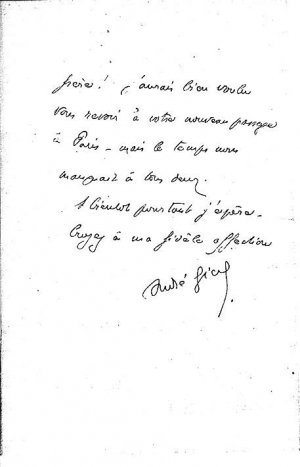 frère ! j'aurais bien voulu
vous revoir à votre nouveau passage
à Paris – mais le temps nous
manquait à tous deux.
A bientôt pourtant j'espère.
Croyez à ma fidèle affection
André Gide.